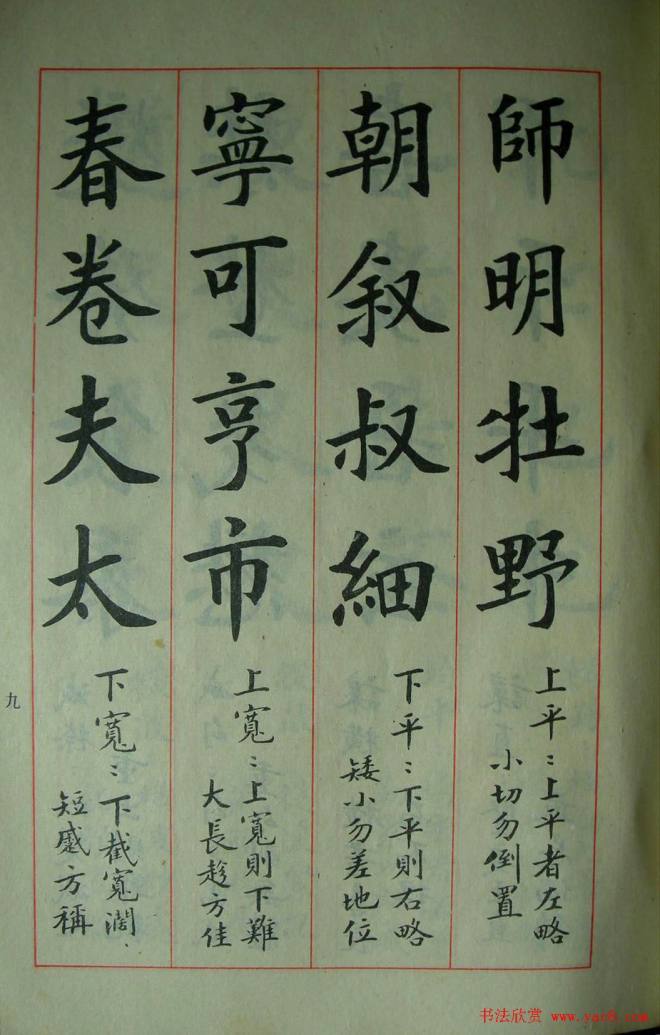 師明牡野
上平：上平者左略
小切勿倒置
朝叙叔細
下平：下平則右略
矮小勿差地位
寧可亨市
上寬：上寬則下難
大長趁方佳
春卷夫太
下寬：下截寬濶、
短蹙方稱
九
书法欣赏 www.yac8.com